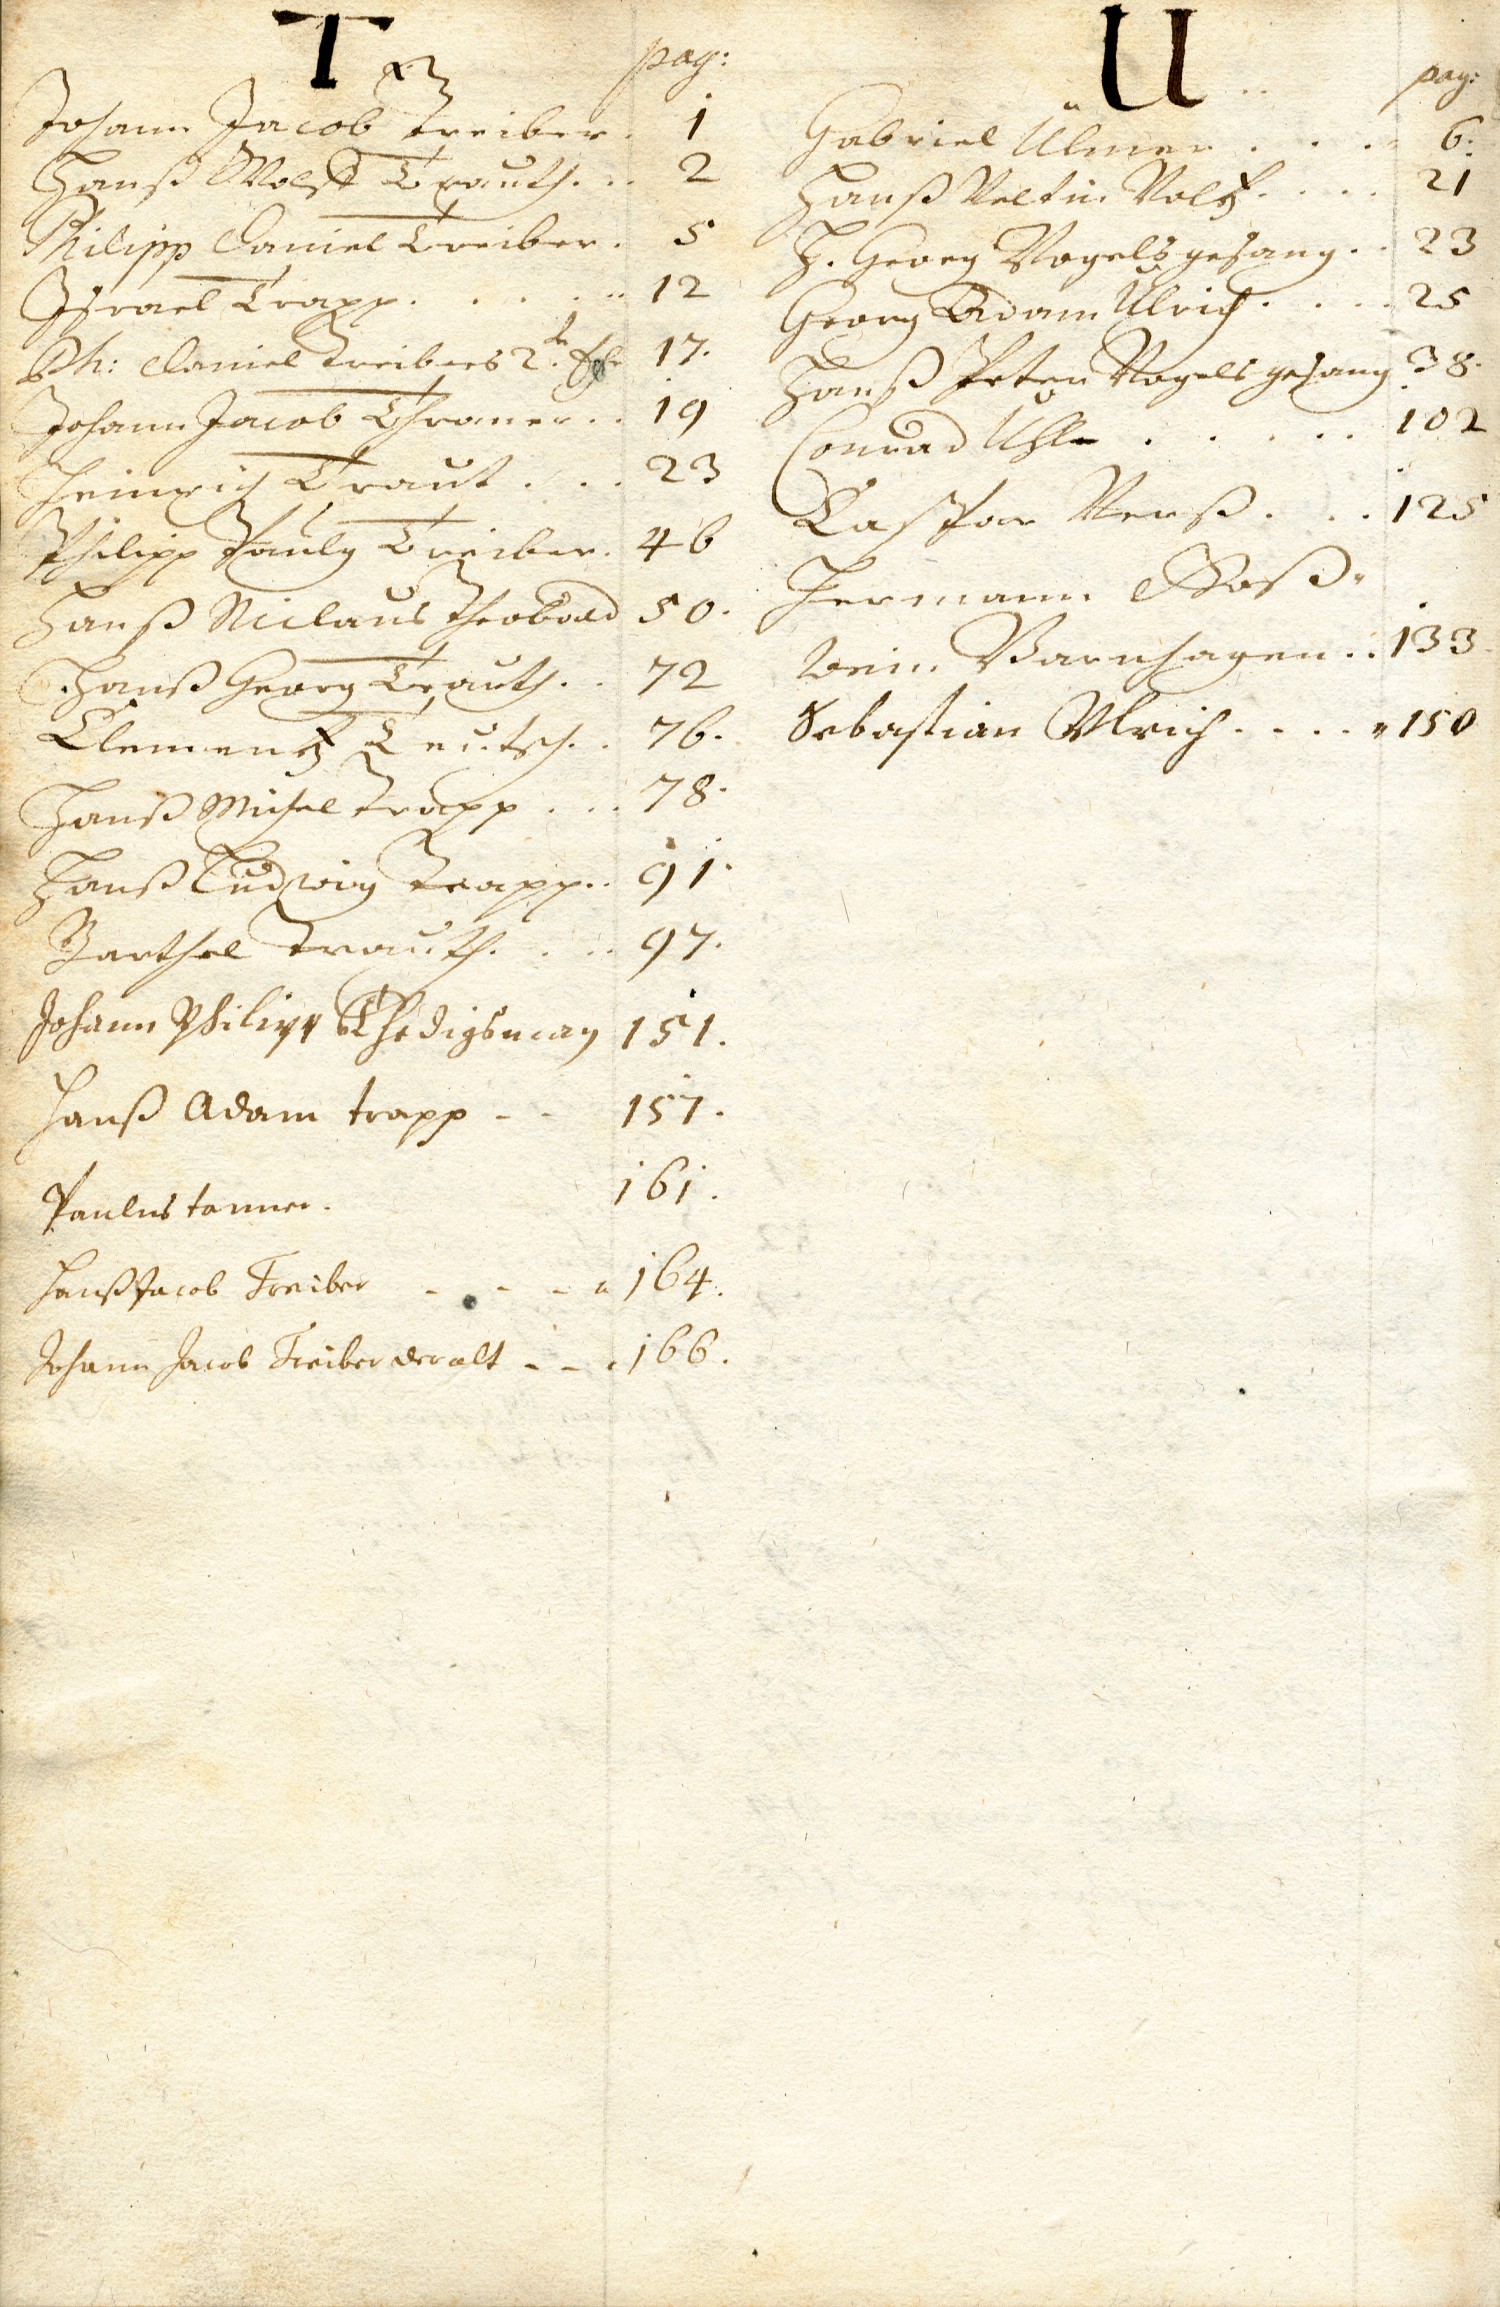 T
pag:
Johann Jacob Treiber. 1
Hanß Wolff Trauth... 2
Philipp Daniel Treiber. 5
Israel Trapp...... 12
Ph: Daniel Treibers 2.te 17.
Johann Jacob Thraner.. 19
Heinrich Traut... 23
Philipp Pauly Treiber. 46
Hanß Niclaus Theobald 50.
Hanß Georg Trauth.. 72
Clementz Teutsch.. 76.
Hanß Michel Trapp... 78.
Hanß Ludwig Trapp.. 91.
Barthel Trauth.... 97.
Johann Philipp 151.
Hanß Adam trapp - - 157.
Paulus tanner. 161.
Hanß Jacob Treiber - - - 164.
Johann Jacob Treiber der alt - - . 166.
U
pag:
Gabriel Ulmer.... 6.
Hanß Veltin Voltz.... 21
H. Georg Vogelsgesang.. 23
Georg Adam Ulrich.... 25
Hanß Peter Vogelsgesang 38.
Conrad Uhle..... 102
Caspar Verß... 125
Hermann
wein Varnhagen.. 133.
Sebastian Vlrich.... 150